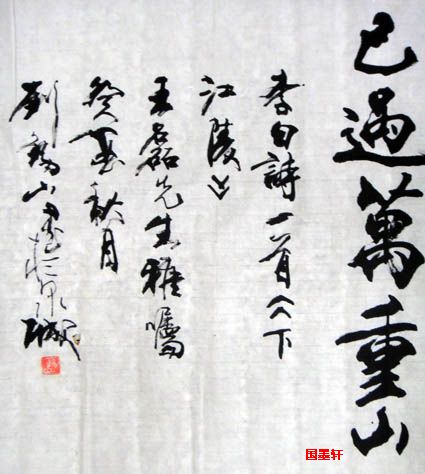 已過萬重山
李白詩一首《下
江陵》
王磊先生雅嘱
癸酉秋月
劉 山書於泉城
国墨轩